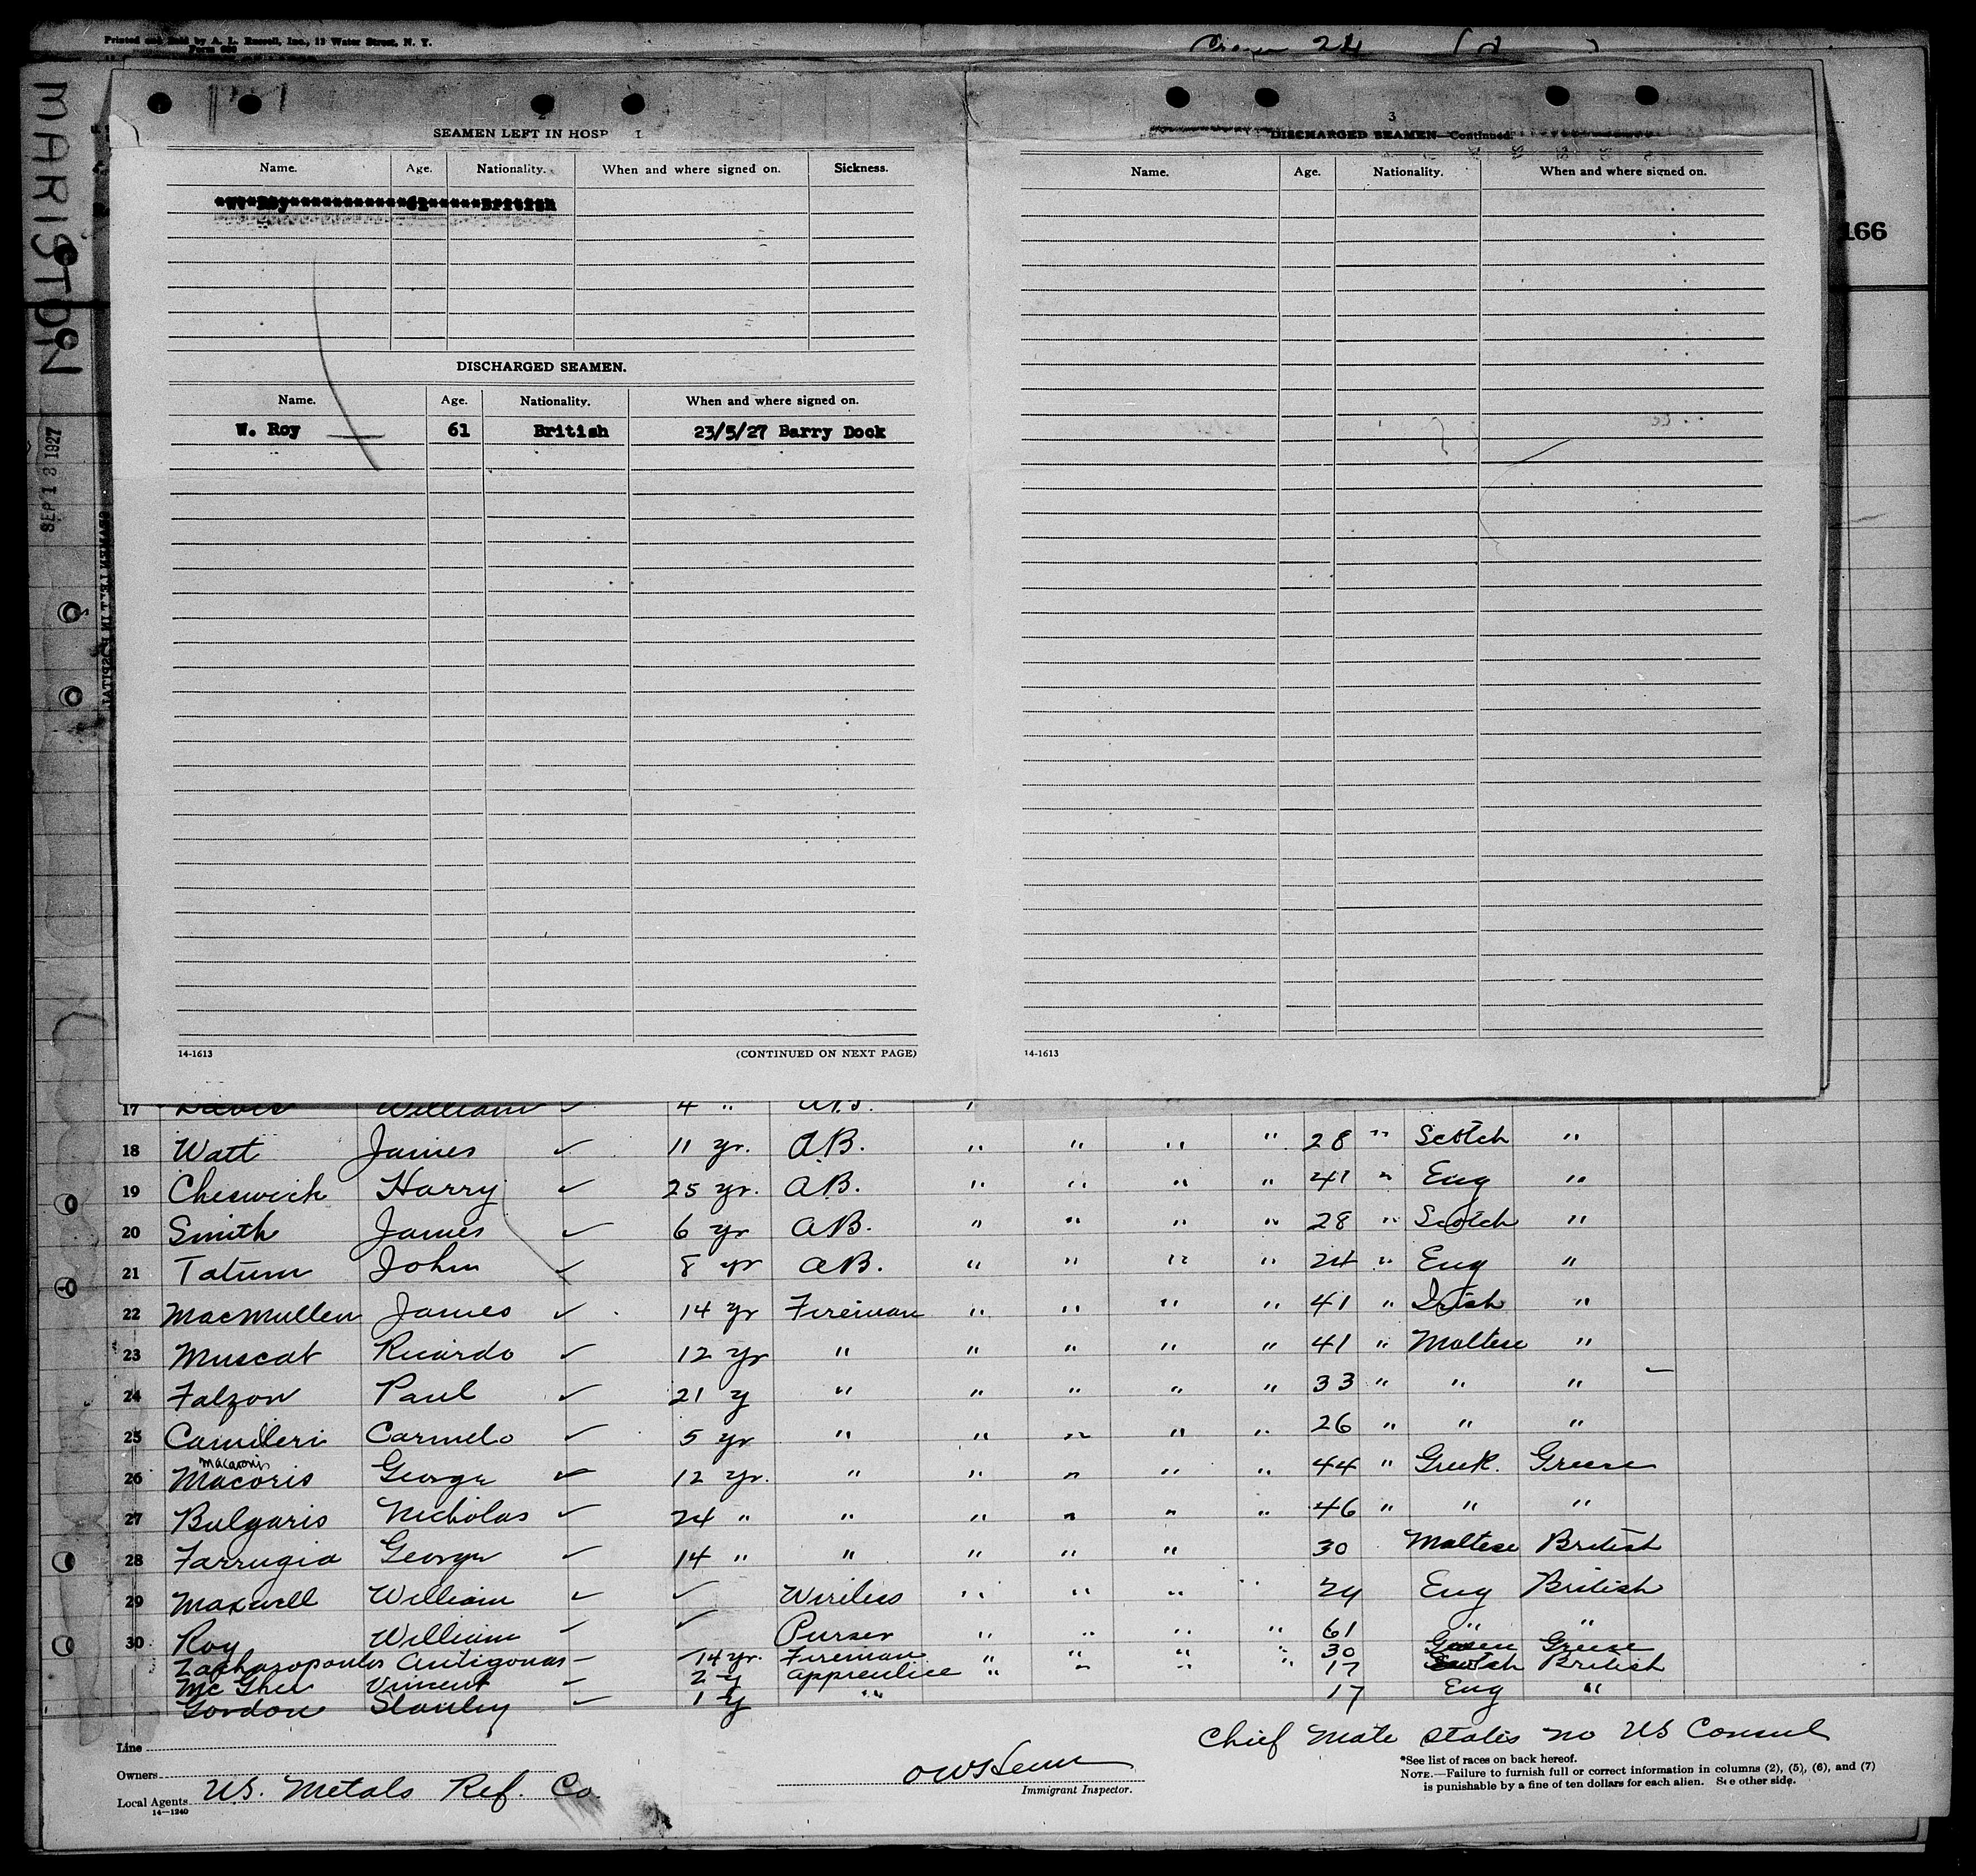 Printed and Sold by A. L. Russell, Inc., 12 Water Street, N. Y.
MARISTON
SEP 13 1927
166
2
SEAMEN LEFT IN HOSP
Name. Age. Nationality. When and where signed on. Sickness.
W. Roy 61 British
DISCHARGED SEAMEN.
Name. Age. Nationality. When and where signed on.
W. Roy 61 British 23/5/27 Barry Dock
14-1613 (CONTINUED ON NEXT PAGE)
3
DISCHARGED SEAMEN—Continued.
Name. Age. Nationality. When and where signed on.
14-1613
SEAMEN LEFT IN HOSPITAL
17 Davis William ✓ 4 " A.B. "
18 Watt James ✓ 11 yr. A.B. " " " " 28 " Scotch "
19 Cheswick Harry ✓ 25 yr. A.B. " " " " 41 " Eng "
20 Smith James ✓ 6 yr A.B. " " " " 28 " Scotch "
21 Tatum John ✓ 8 yr A.B. " " " " 24 " Eng "
22 MacMullen James ✓ 14 yr Fireman " " " " 41 " Irish "
23 Muscat Ricardo ✓ 12 yr " " " " " 41 " Maltese "
24 Falzon Paul ✓ 21 y " " " " " 33 " " "
25 Camilleri Carmelo ✓ 5 yr " " " " " 26 " " "
macaronis
26 Macoris George ✓ 12 yr. " " " " " 44 " Greek. Greese
27 Bulgaris Nicholas ✓ 24 " " " " " " 46 " " "
28 Farrugia George ✓ 14 " " " " " 30 Maltese British
29 Maxwell William ✓ ✓ Wireless " " " " 24 Eng British
30 Roy William ✓ ✓ Purser " " " " 61 " "
Zacharopoulos Antigonas 14 yr. Fireman " " " " 30 Greese
McGhee Vincent 2 y apprentice " " " " 17 Scotch British
Gordon Stanley ✓ 1 y " 17 Eng "
Chief Mate States no US Consul
Line
Owners
Local Agents U.S. Metals Ref. Co.
14—1240
Immigrant Inspector.
*See list of races on back hereof.
NOTE.—Failure to furnish full or correct information in columns (2), (5), (6), and (7)
is punishable by a fine of ten dollars for each alien. See other side.